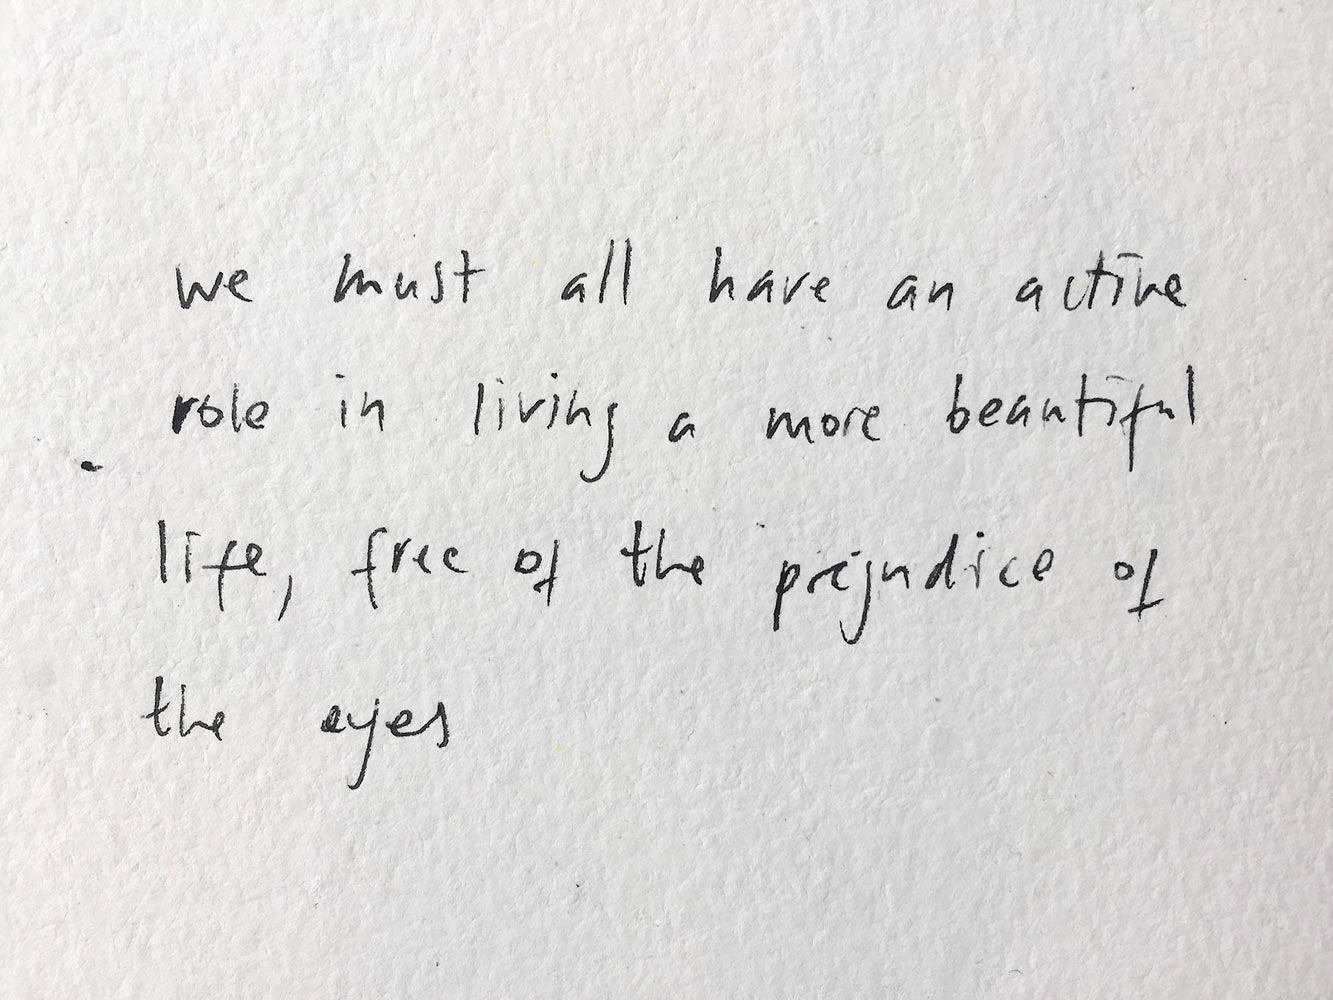 we must all have an active
role in living a more beautiful
life, free of the prejudice of
the eyes